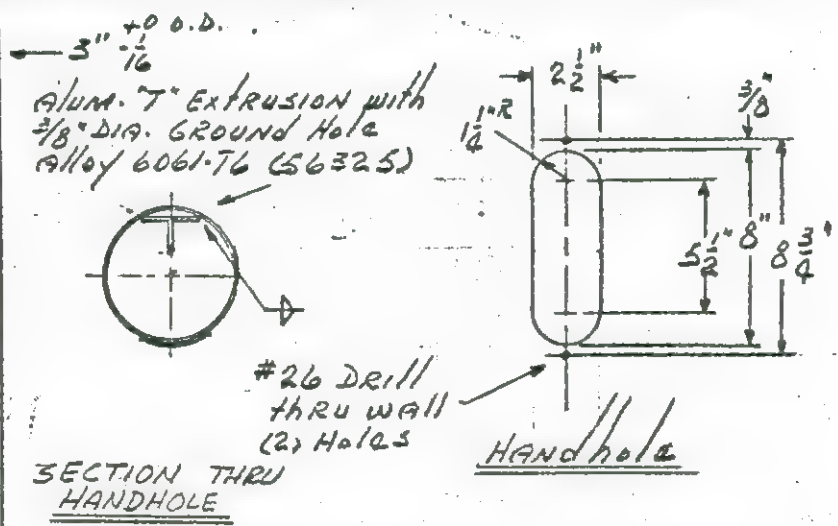 3" +0 -1/16 O.D.
Alum. "T" Extrusion with
3/8" DIA. GROUND Hole
Alloy 6061-T6 (56325)
2 1/2"
3/8"
1 1/4" R
5 1/2"
8"
8 3/4"
#26 DRill
thRU WAll
(2) Holes
SECTION THRU
HANDHOLE
HANDhole